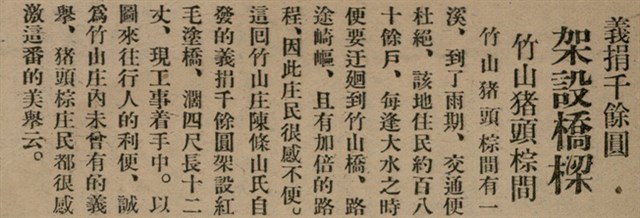 義捐千餘圓
架設橋樑
竹山猪頭棕間
竹山猪頭棕間有一
溪、到了雨期、交通便
杜絕、該地住民約百八
十餘戶、每逢大水之時
便要迂廻到竹山橋、路
途崎嶇、且有加倍的路
程、因此庄民很感不便。
這回竹山庄陳條山氏自
發的義捐千餘圓架設紅
毛塗橋、濶四尺長十二
丈、現工事着手中。以
圖來往行人的利便、誠
爲竹山庄內未曾有的義
舉、猪頭棕庄民都很感
激這番的美舉云。